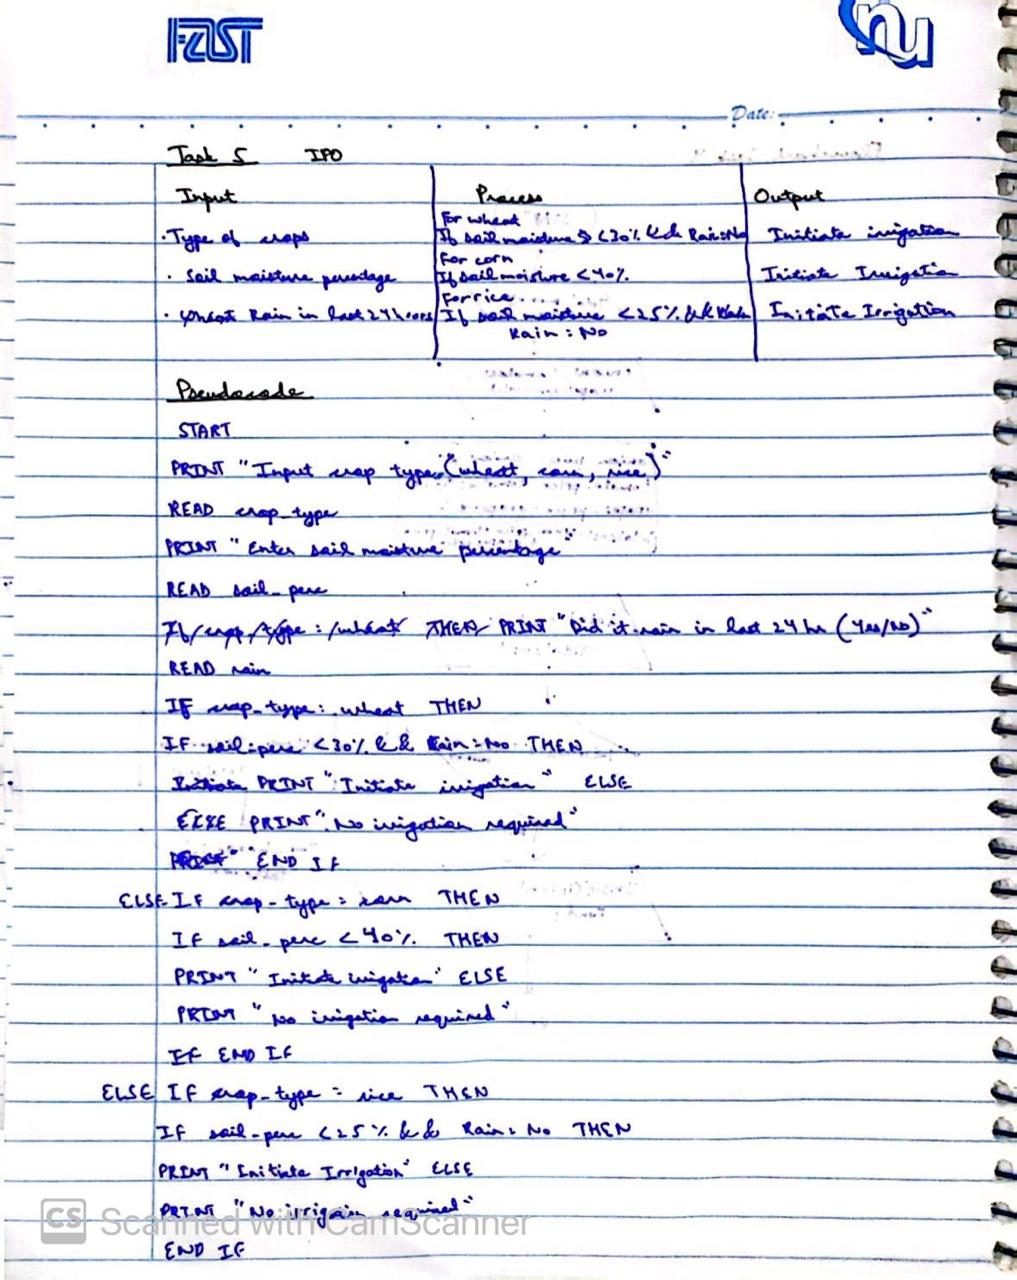 FAST
nu
Date:
Task 5 IPO
Input Process Output
For wheat
· Type of crops If soil moisture <30% && Rain:No Initiate irrigation
For corn
· Soil moisture percentage If soil moisture <40% Initiate Irrigation
For rice
· Rain in last 24 hours If soil moisture <25% && Initiate Irrigation
Rain : No
Pseudocode
START
PRINT "Input crop type (wheat, corn, rice)"
READ crop_type
PRINT "Enter soil moisture percentage"
READ soil_perc
If crop type : wheat THEN PRINT "Did it rain in last 24 hr (Yes/No)"
READ rain
IF crop_type : wheat THEN
IF soil_perc <30% && Rain:No THEN
Initiate PRINT "Initiate irrigation" ELSE
ELSE PRINT "No irrigation required"
PRINT" END IF
ELSE IF crop_type : corn THEN
IF soil_perc <40% THEN
PRINT "Initiate irrigation" ELSE
PRINT "No irrigation required"
IF END IF
ELSE IF crop_type = rice THEN
IF soil_perc <25% && Rain: No THEN
PRINT "Initiate Irrigation" ELSE
PRINT "No irrigain required"
END IF
CS Scanned with CamScanner